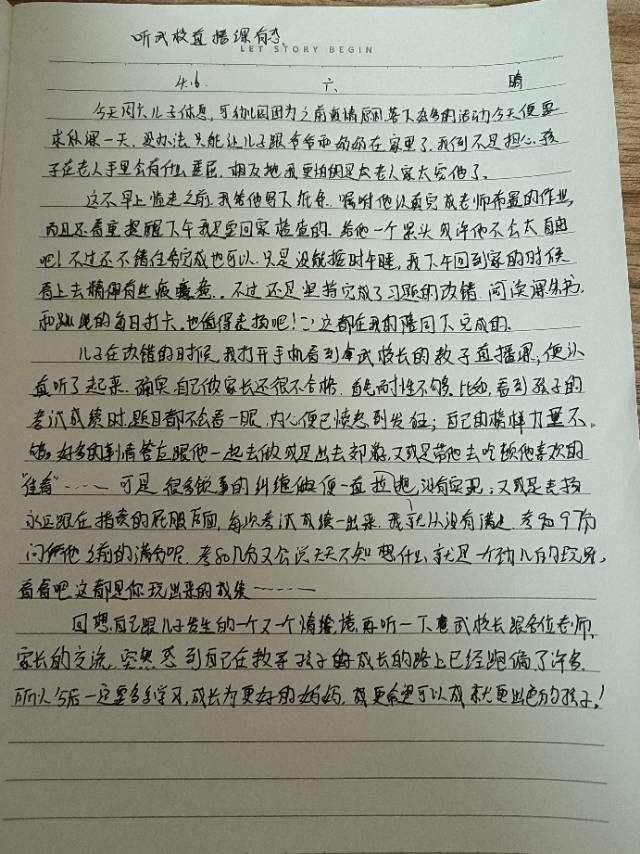 听武校直播课有感
LET STORY BEGIN
4.16 六 晴
今天因为儿子休息，可幼儿园因为之前疫情原因落下太多的活动今天便要
求补课一天，没办法只能让儿子跟爷爷和奶奶在家里了，我倒不是担心孩
子在老人手里会有什么委屈，相反地我更怕的是老人家太宠他了。
这不早上临走之前，我给他写下纸条，嘱咐他认真完成老师布置的作业，
而且还着重提醒下午我是要回家检查的，给他一个
吧！不过还不错任务完成也可以，只是没能按时午睡，我下午回到家的时候
看上去精神有些疲惫，不过还是坚持完成了习题的改错、阅读课外书
和跳绳的每日打卡，也值得表扬吧！这都在我的陪同下完成的。
儿子在改错的时候，我打开手机看到武校长的教子直播课，便认
真听了起来，确实自己做家长还很不合格，首先耐性不够，比如，看到孩子的
考试成绩时，题目都不会看一眼，内心便已愤怒到发狂；自己的榜样力量不
够，好多的事情答应跟他一起去做或是出去郊游，又或是带他去吃顿他喜欢的
可是很多琐事的纠缠便一直没有实现；又或是表扬
永远跟在指责的屁股后面，每次考试成绩一出来，我就从没有满足，考和97分
问他之前的满分呢，考和几分又会说天天不知想什么，就是一个劲儿的玩，
看看吧这都是你玩出来的成绩……
回想自己跟儿子发生的一个又一个情绪，再听一下武校长跟各位老师、
家长的交流，突然感到自己在教子孩子的成长的路上已经跑偏了许多，
所以今后一定要多多学习，成长为更好的妈妈，可以成就更出色的孩子！